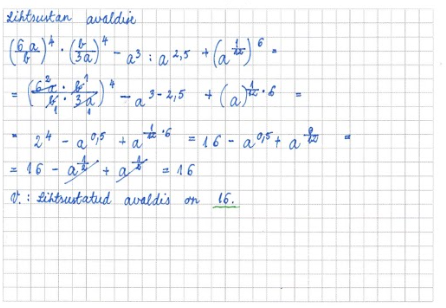 Lihtsustan avaldise
(6a/b)^4 · (b/3a)^4 - a^3 : a^2,5 + (a^1/12)^6 =
= (6a · b / b · 3a)^4 - a^3-2,5 + (a)^1/12·6 =
= 2^4 - a^0,5 + a^1/12·6 = 16 - a^0,5 + a^6/12 =
= 16 - a^1/2 + a^1/2 = 16
V.: Lihtsustatud avaldis on 16.